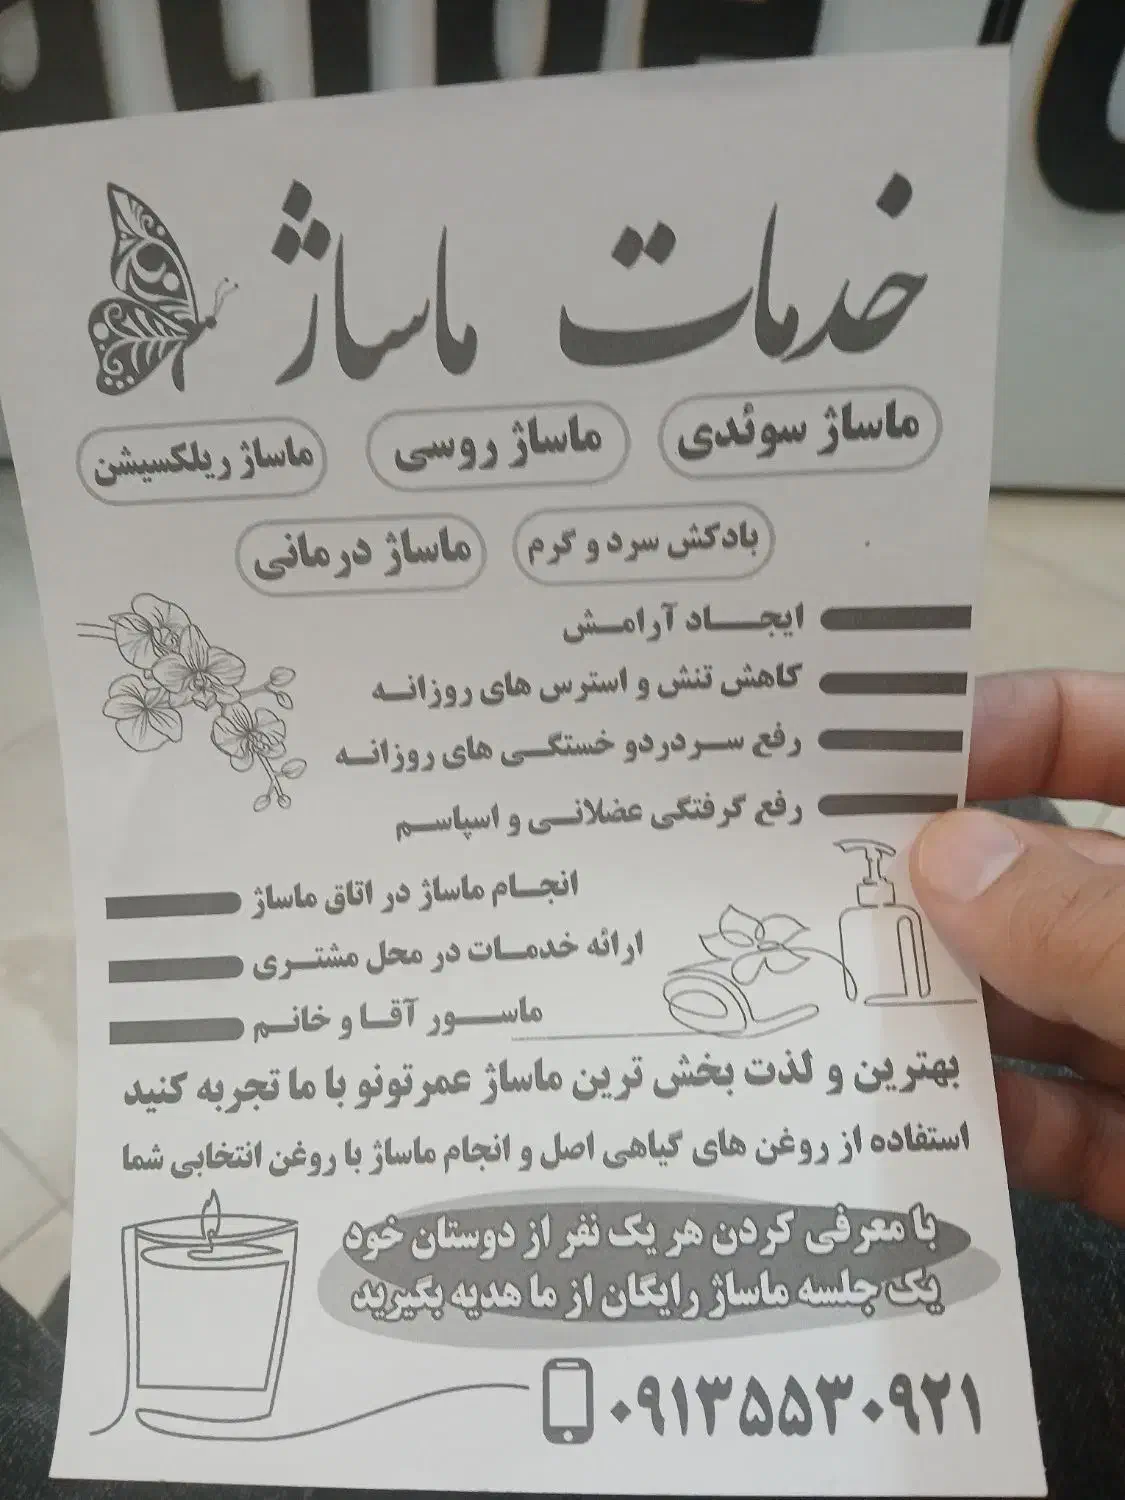 خدمات ماساژ
ماساژ سوئدی
ماساژ روسی
ماساژ ریلکسیشن
بادکش سرد و گرم
ماساژ درمانی
ایجاد آرامش
کاهش تنش و استرس های روزانه
رفع سردردو خستگی های روزانه
رفع گرفتگی عضلانی و اسپاسم
انجام ماساژ در اتاق ماساژ
ارائه خدمات در محل مشتری
ماسور آقا و خانم
بهترین و لذت بخش ترین ماساژ عمرتونو با ما تجربه کنید
استفاده از روغن های گیاهی اصل و انجام ماساژ با روغن انتخابی شما
با معرفی کردن هر یک نفر از دوستان خود
یک جلسه ماساژ رایگان از ما هدیه بگیرید
۰۹۱۳۵۵۳۰۹۲۱